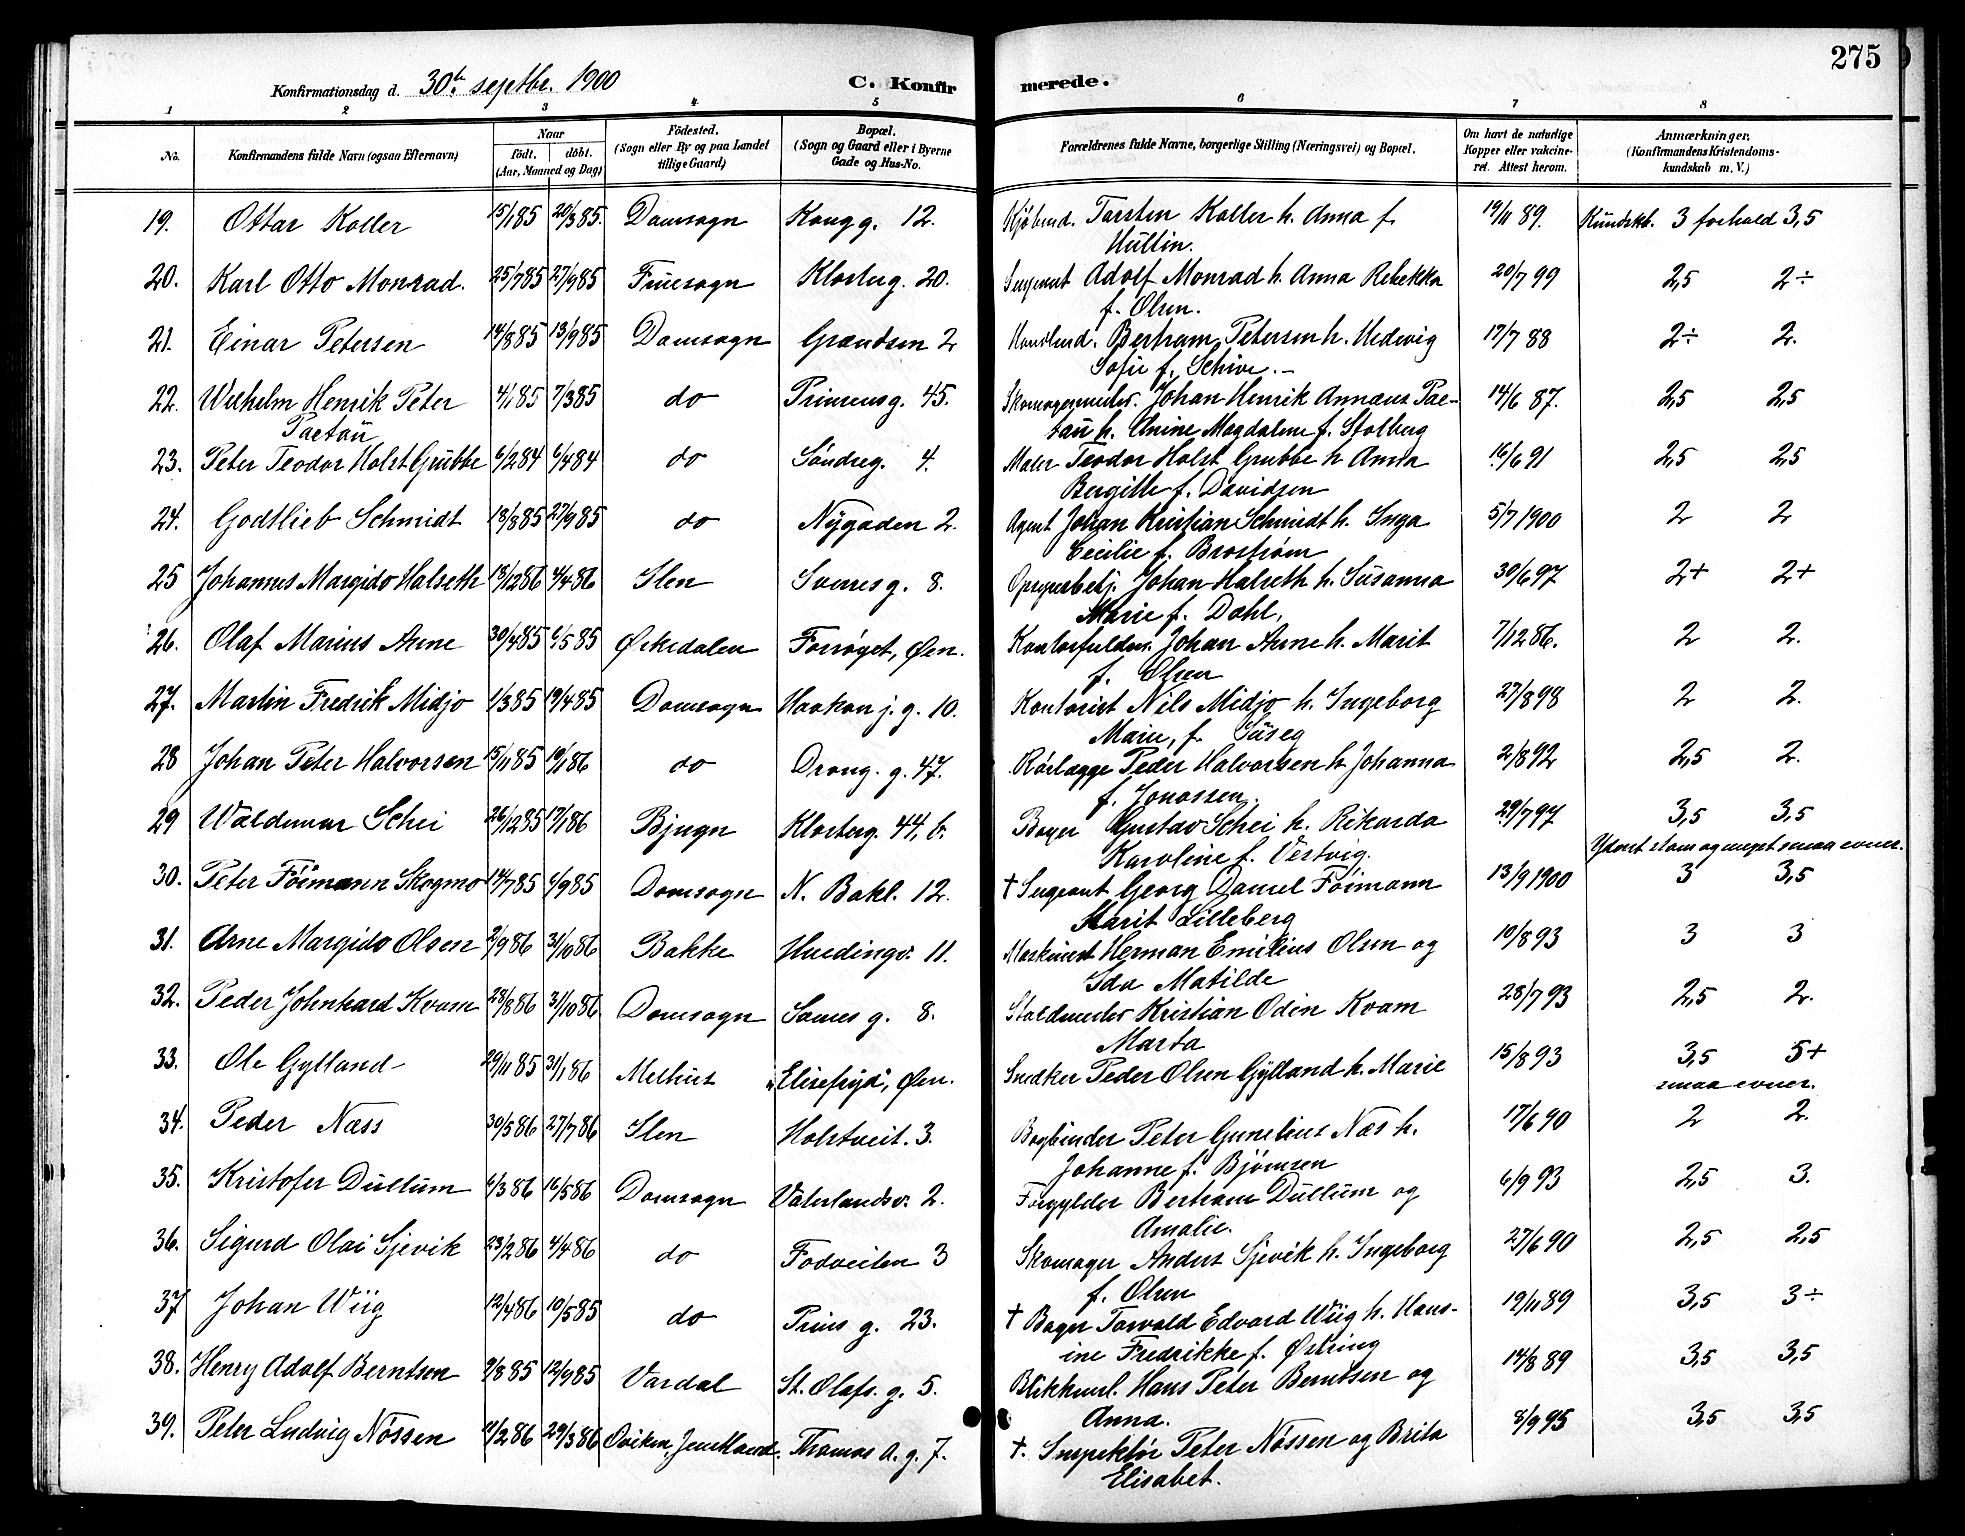 275
Konfirmationsdag d. 30te septbr. 1900 C. Konfirmerede.
1 2 3 4 5 6 7 8
No. Konfirmandens fulde Navn (ogsaa Efternavn) Naar født. døbt. (Aar, Maaned og Dag) Fødested. (Sogn eller By og paa Landet tillige Gaard) Bopæl. (Sogn og Gaard eller i Byerne Gade og Hus-No. Forældrenes fulde Navne, borgerlige Stilling (Næringsvei) og Bopæl. Om havt de naturlige Kopper eller vaccineret. Attest herom. Anmærkninger. (Konfirmandens Kristendomskundskab m. V.)
19. Ottar Koller 15/1 85 20/3 85. Domsogn Kongg. 12. Kjøbmd. Torsten Koller h. Anna f. 19/11 89. Kundskb. 3 forhold 3,5
Hultin.
20. Karl Otto Monrad. 25/7 85 27/9 85 Fruesogn Klosterg. 20. Sergeant Adolf Monrad h. Anna Rebekka 20/7 99 2,5 2÷
f. Olsen.
21. Einar Petersen 14/8 85 13/9 85 Domsogn Grandsen 2 Handlmd. Bertram Petersen h. Hedevig 17/7 88 2÷ 2.
Sofie f. Schive. –
22. Wilhelm Henrik Peter 4/1 85 7/3 85 do Prinsensg. 45. Skomagermester. Johan Henrik Annaus Pae- 14/6 87. 2,5 2,5
Paetau tau h. Anine Magdalene f. Stolberg
23. Peter Teodor Holst Grubbe 6/2 84 6/4 84 do Søndreg. 4. Maler Teodor Holst Grubbe h Anna 16/6 91 2,5 2,5
Bergitte f. Davidsen
24. Godtlieb Schmidt 13/8 85 27/9 85 do Nygaden 2. Agent Johan Kristian Schmidt h. Inga 5/7 1900 2 2
Cecilie f. Brostrøm
25 Johannes Margido Halseth 4/4 86 Ilen Sverresg. 8. Johan Halseth h. Susanna 30/6 97 2+ 2+
Marie f. Dahl.
26. Olaf Marius Aune 30/4 85 6/5 85 Ørkedalen Forrøget, Øen. Kontorfuldm. Johan Aune h. Marit 7/12 86. 2 2.
f. Olsen
27. Martin Fredrik Midjo 1/3 85 19/4 85 Domsogn Haakon j. g. 10. Kontorist Nils Midjo h. Ingeborg 27/8 98 2 2.
Marie, f.
28 Johan Peter Halvorsen 15/11 85 19/1 86 do Drong. g. 47. Rørlægge Peder Halvorsen h Johanna 2/8 92 2,5 2.
f. Jonassen.
29 Waldemar Schei 26/12 85 17/1 86 Bjugn Klosterg. 44, b. Bager Gustav Schei h. Rikarda 29/7 97 3,5 3,5
Karoline f. Vestvig. Yderst stam og meget smaa evner.
30. Peter Föimann Skogmo 14/7 85 6/9 85 Domsogn N. Bakl. 12. † Sergeant Georg Daniel Föimann 13/9 1900 3 3,5
Marit Lilleberg
31. Arne Margido Olsen 2/9 86 31/10 86 Bakke 11. Maskinist Herman Emilius Olsen og 10/8 93 3 3
Ida Matilde
32. Peder Johnhard Kvam 28/8 86 31/10 86 Domsogn g. 8. Staldmester Kristian Odin Kvam 28/7 93 2,5 2.
Marta
33. Ole Gylland 29/11 85 31/1 86 Melhus „Elisefryd“, Øen. Snedker Peder Olsen Gylland h. Marie 15/8 93 3,5 5+
smaa evner.
34. Peder Næss 30/5 86 27/7 86 Ilen Holstveit. 3. Bogbinder Peter Gunelius Næs h. 17/6 90 2 2.
Johanne f. Bjørnsen
35. Kristofer Dullum 6/3 86 16/5 86 Domsogn Vaterlandsv. 2. Forgylder Bertram Dullum og 6/9 93 2,5 3.
Amalie.
36. Sigurd Olai Sjevik 23/2 86 4/4 86 do Fodveiten 3 Skomager Anders Sjevik h. Ingeborg 27/6 90 2,5 2,5
f. Olsen
37 Johan Wiig 12/4 86 10/5 85 do Prins g. 23. † Bager Torvald Edvard Wiig h. Hans- 19/11 89 3,5 3÷
ine Fredrikke f. Østring
38. Henry Adolf Berntsen 9/8 85 12/9 85 Vardal St. Olafs. g. 5. Blikkensl. Hans Peter Berntsen og 14/8 89 3,5 3,5
Anna.
39. Peter Ludvig Nössen 11/2 86 29/3 86 Oviken, Jemtland. Thomas A. g. 7. †. Inspektör Peter Nössen og Brita 8/9 95 3,5 3,5
Elisabet.